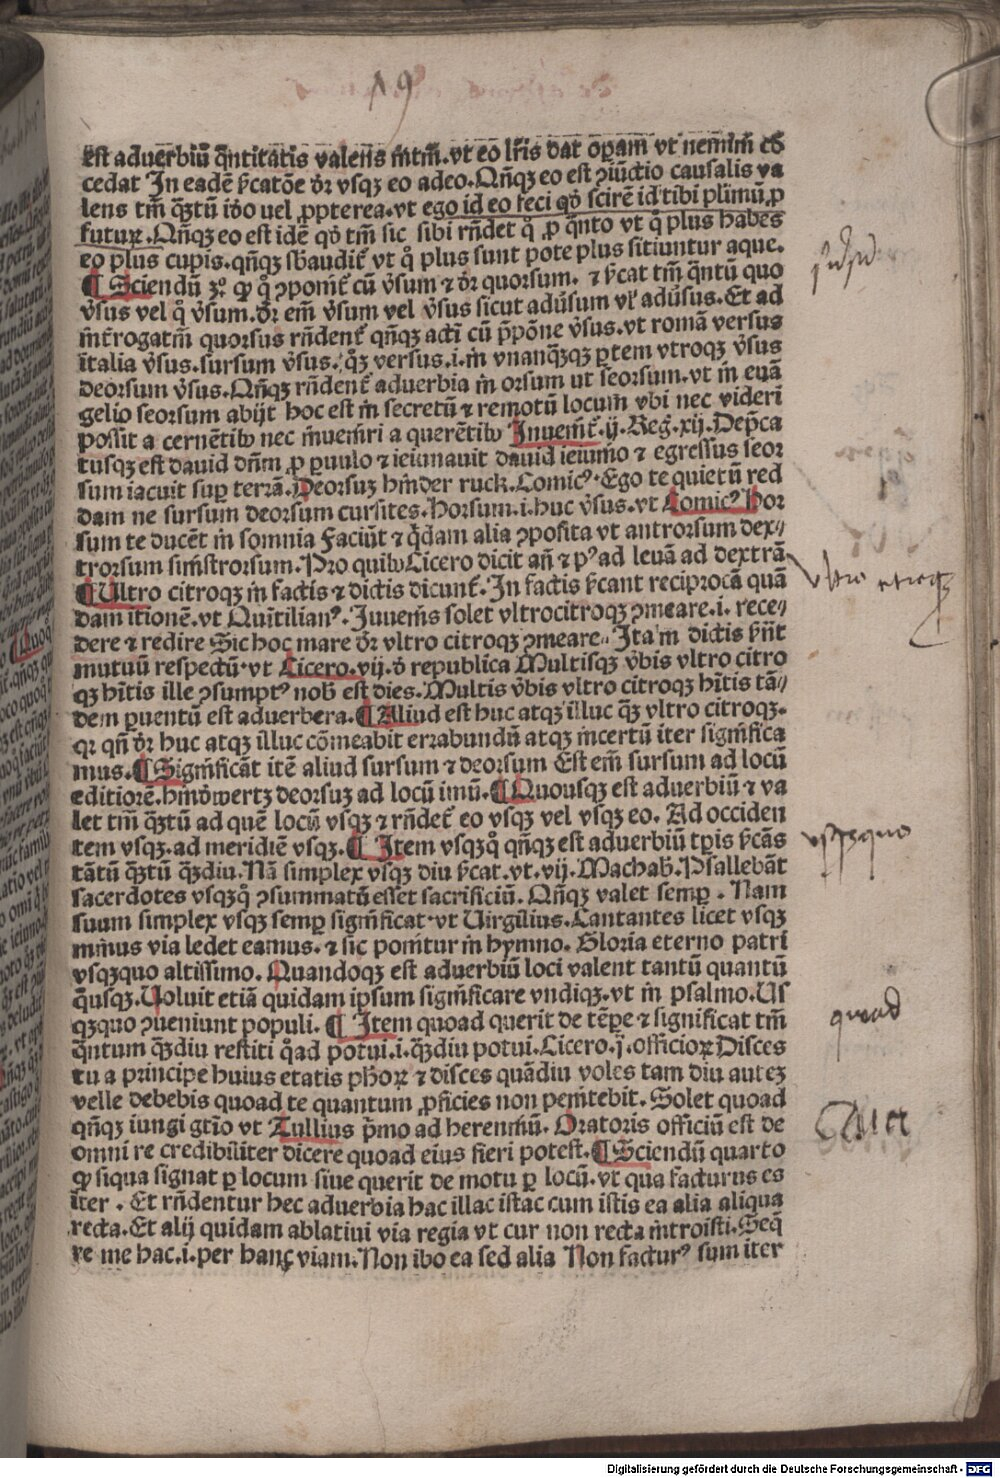 19
est aduerbiū q̄ntitatis valens m̄tm̄.vt eo lr̄is dat oꝑam vt nemīm cō
cedat In eadē ſ̓catōe dr̄ vsqꝫ eo adeo.Qn̄qꝫ eo est ꝯiūctio causalis va
lens tm̄ qꝫtū iđo uel ꝓpterea.vt ego id eo feci qđ scirē id tibi plīmū ꝓ
futuꝝ.Qn̄qꝫ eo est idē qđ tm̄ sic sibi rn̄det q̊ ꝓ q̄nto vt q̊ plus habes
eo plus cupis.qn̄qꝫ sb̄audit̄ vt q̊ plus sunt pote plus sitiuntur aque.
¶ Sciendū ꝙ q̊ ꝯponit̄ cū v̓sum ⁊ dr̄ quorsum. ⁊ ſ̓cat tm̄ q̄ntū quo
v̓sus vel q̊ v̓sum.dr̄ em̄ v̓sum vel v̓sus sicut adūsum vl̓ adūsus.Et ad
īnt̄rogatm̄ quorsus rn̄dent̄ qn̄qꝫ acti cū p̄pōne v̓sus.vt romā versus
ītalia v̓sus.sursum v̓sus. q̄ꝫ versus.i.in vnanq̄ꝫqꝫ ꝑtem vtroqꝫ v̓sus
deorsum v̓sus.Qn̄qꝫ rn̄dent̄ aduerbia in orsum ut seorsum.vt in euā
gelio seorsum abijt hoc est in secretū ⁊ remotū locum vbi nec videri
possit a cernētibꝰ nec inueniri a querētibꝰ Inuenit̄.ij.Reg.xij.Dep̄ca
tusqꝫ est dauid dn̄m ꝓ ꝑuulo ⁊ ieiunauit dauid ieiunio ⁊ egressus seor
sum iacuit suꝑ terrā.Deorsuꝫ hinder ruck.Comicꝰ.Ego te quietū red
dam ne sursum deorsum cursites.Horsum.i.huc v̓sus.vt Comicꝰ hor
sum te ducēt in somnia Faciūt ⁊ q̄dam alia ꝯposita vt antrorsum dex⸗
trorsum sinistrorsum.Pro quibꝰ Cicero dicit an̄ ⁊ pꝰ ad leuā ad dextrā
¶ Ultro citroqꝫ in factis ⁊ dictis dicunt̄.In factis ſ̓cant reciprocā quā
dam itionē.vt Quītilianꝰ.Juuenis solet vltrocitroqꝫ ꝯmeare.i.rece⸗
dere ⁊ redire Sic hoc mare dr̄ vltro citroqꝫ ꝯmeare. Ita in dictis ſ̓n̄t
mutuū respectū.vt Cicero.vij.đ republica Multisqꝫ v̓bis vltro citro
qꝫ hītis ille ꝯsumptꝰ nob̄ est dies.Multis v̓bis vltro citroqꝫ hītis tā⸗
dem ꝑuentū est aduerbera.¶ Aliud est huc atqꝫ illuc q̄ꝫ vltro citroqꝫ.
qꝛ qn̄ dr̄ huc atqꝫ illuc cōmeabit errabundū atqꝫ incertū iter significa
mus.¶ Significāt itē aliud sursum ⁊ deorsum Est em̄ sursum ad locū
editiorē.hinōwertꝫ deorsuꝫ ad locū imū.¶ Quousqꝫ est aduerbiū ⁊ va
let tm̄ qꝫtū ad quē locū vsqꝫ ⁊ rn̄det̄ eo vsqꝫ vel vsqꝫ eo. Ad occiden
tem vsqꝫ.ad meridiē vsqꝫ.¶ Item vsqꝫq̊ qn̄qꝫ est aduerbiū tꝑis ſ̓cās
tātū qꝫtū qꝫdiu.Nā simplex vsqꝫ diu ſ̓cat.vt.vij.Machab̄.Psallebāt
sacerdotes vsqꝫq̊ ꝯsummatū esset sacrificiū.Qn̄qꝫ valet semꝑ. Nam
suum simplex vsqꝫ semꝑ significat.vt Uirgilius.Cantantes licet vsqꝫ
minus via ledet eamus.⁊ sic ponitur in hymno. Gloria eterno patri
vsqꝫquo altissimo. Quandoqꝫ est aduerbiū loci valent tantū quantū
q̄usqꝫ.Uoluit etiā quidam ipsum significare vndiqꝫ.vt in psalmo.Us
qꝫquo ꝯueniunt populi.¶ Item quoad querit de tēꝑe ⁊ significat tm̄
q̄ntum qꝫdiu restiti q̊ad potui.i.qꝫdiu potui.Cicero.j.officioꝝ Disces
tu a principe huius etatis ph̄oꝝ ⁊ disces quādiu voles tam diu auteꝫ
velle debebis quoad te quantum ꝓficies non penitebit.Solet quoad
qn̄qꝫ iungi gtīo vt Tullius p̄mo ad herenniū. Oratoris officiū est de
omni re credibiliter dicere quoad eius fieri potest.¶ Sciendū quarto
ꝙ siqua signat ꝑ locum siue querit de motu ꝑ locū.vt qua facturus es
iter. Et rn̄dentur hec aduerbia hac illac istac cum istis ea alia aliqua
recta.Et alij quidam ablatiui via regia vt cur non recta introisti.Seq̄
re me hac.i.per hanc viam.Non ibo ea sed alia Non facturꝰ sum iter
vltro citroqꝫ
vsqꝫquo
quoad
Qua
Digitalisierung gefördert durch die Deutsche Forschungsgemeinschaft - DFG